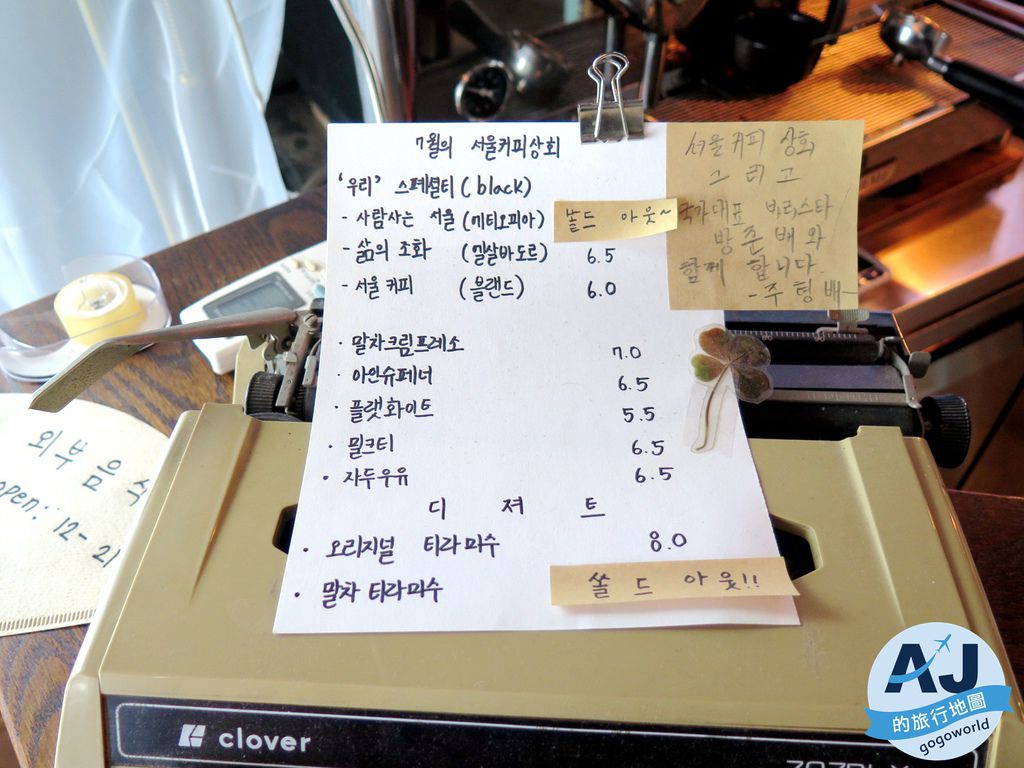 7월의 서울커피상회
'우리' 스페셜티 (black)
- 사람사는 서울 (에티오피아) 쏠드 아웃~
- 삶의 조화 (엘살바도르) 6.5
- 서울 커피 (블랜드) 6.0
· 말차크림프레소 7.0
· 아인슈페너 6.5
· 플랫화이트 5.5
· 밀크티 6.5
· 자두우유 6.5
디 져 트
· 오리지널 티라미수 8.0
· 말차 티라미수 쏠 드 아 웃!!
서울커피 상회
그리고
국가대표 바리스타
방준배와
함께 합니다.
-주팅배-
외부음
open: 12-21
clover
AJ
的旅行地圖
gogoworld